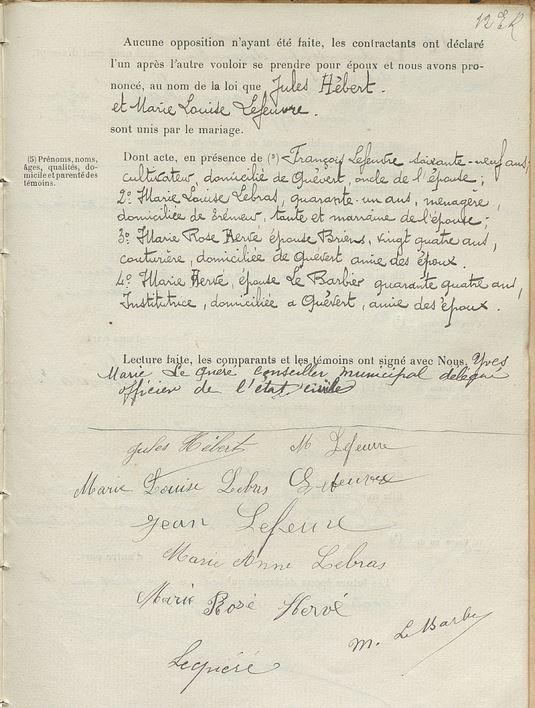 12 ER
Aucune opposition n'ayant été faite, les contractants ont déclaré
l'un après l'autre vouloir se prendre pour époux et nous avons pro-
noncé, au nom de la loi que Jules Hébert.
et Marie Louise Lefeuvre.
sont unis par le mariage.
(5) Prénoms, noms,
âges, qualités, do-
micile et parenté des
témoins.
Dont acte, en présence de (5) François Lefeuvre soixante-neuf ans,
cultivateur, domicilié de Quévert, oncle de l'épouse ;
2º Marie Louise Lebras, quarante-un ans, ménagère,
domiciliée de, tante et marraine de l'épouse ;
3º Marie Rose Hervé épouse Briens, vingt quatre ans,
couturière, domiciliée de Quévert amie des époux.
4º Marie Hervé, épouse Le Barbier quarante quatre ans,
Institutrice, domiciliée a Quévert, amie des époux.
Lecture faite, les comparants et les témoins ont signé avec Nous, Yves
Marie Le Quéré conseiller municipal délégué
officier de l'état civil
Jules Hébert M Lefeuvre
Marie Louise Lebras Lefeuvre
Jean Lefeuvre
Marie Anne Lebras
Marie Rose Hervé
M. Le Barbier
Lequéré